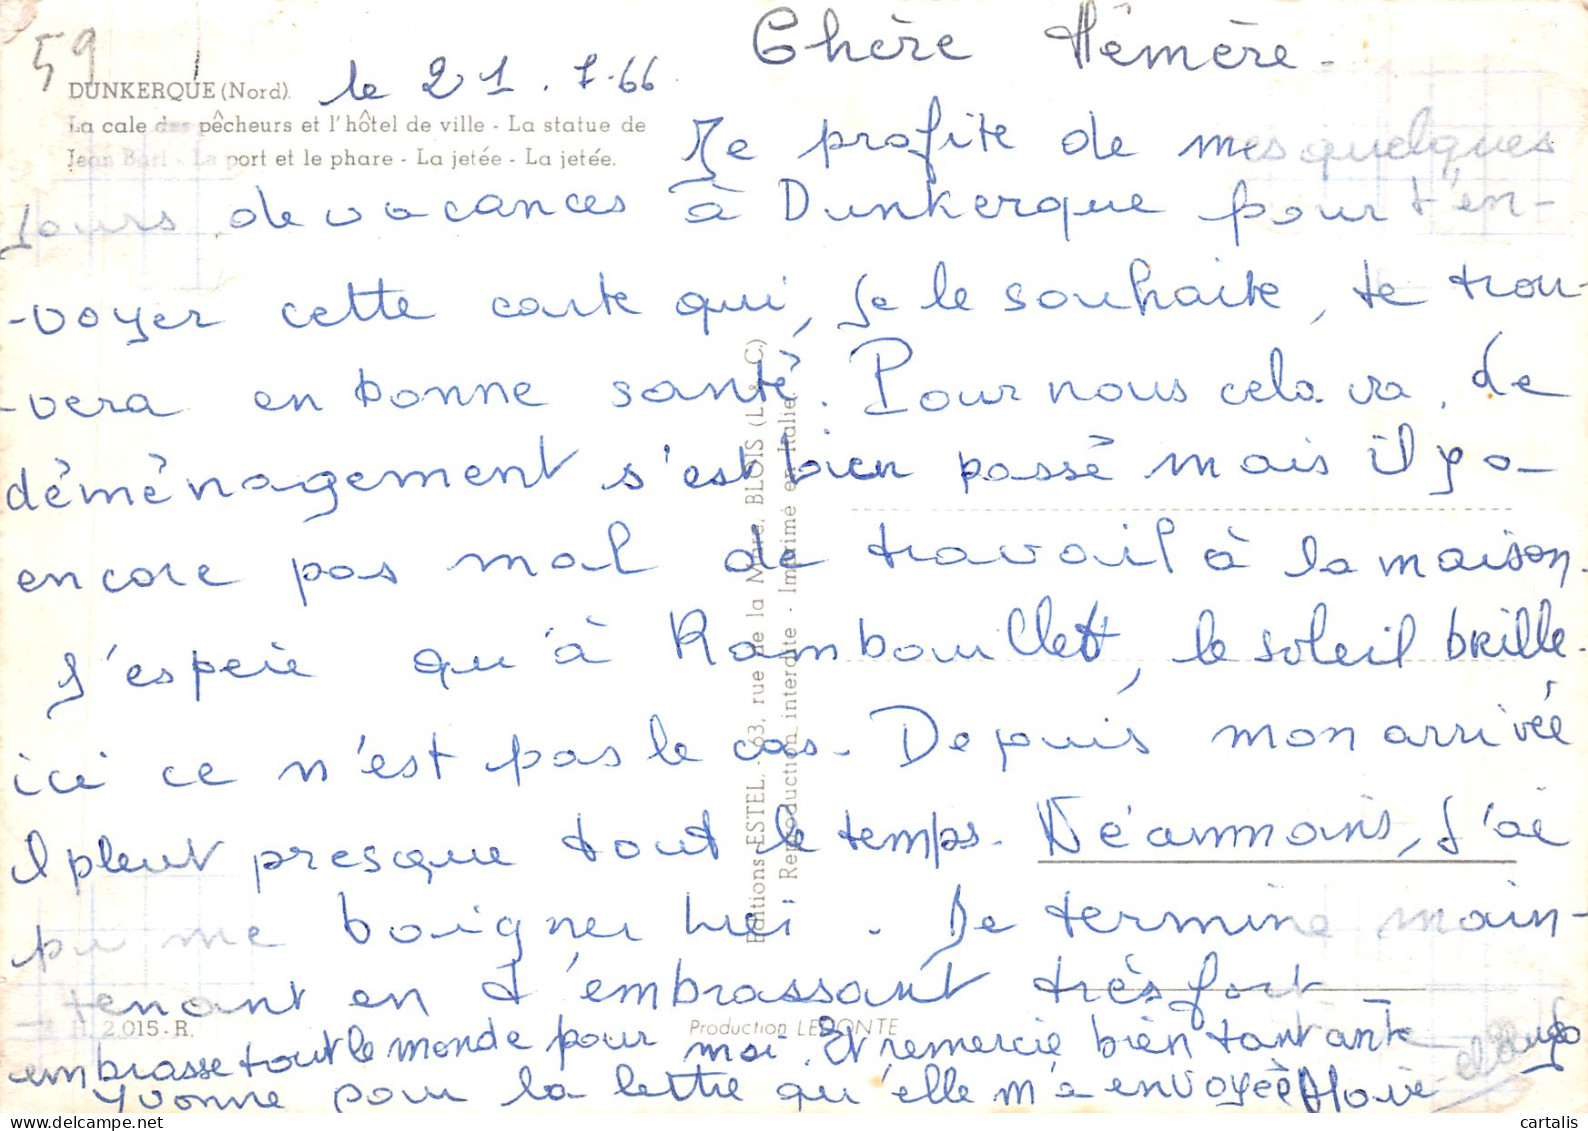 59
DUNKERQUE (Nord).
le 21.7.66
Chère Mémère.
La cale des pêcheurs et l'hôtel de ville - La statue de
Jean Bart - Le port et le phare - La jetée - La jetée.
Je profite de mes quelques
jours de vacances à Dunkerque pour t'en-
-voyer cette carte qui, je le souhaite, te trou-
-vera en bonne santé. Pour nous cela va, de
déménagement s'est bien passé mais il y a
encore pas mal de travail à la maison.
J'espère qu'à Rambouillet, le soleil brille.
ici ce n'est pas le cas. Depuis mon arrivée
il pleut presque tout le temps. Néanmoins, j'ai
pu me baigner hier. Je termine main-
tenant en t'embrassant très fort -
embrasse tout le monde pour moi. Et remercie bien tantante
Yvonne pour la lettre qu'elle m'a envoyée
II. 2.015 - R.
Production LECONTE
Editions ESTEL. - 63, rue de la Mare, BLOIS (L.-&-C.)
Reproduction interdite - Imprimé en Italie.
cartalis